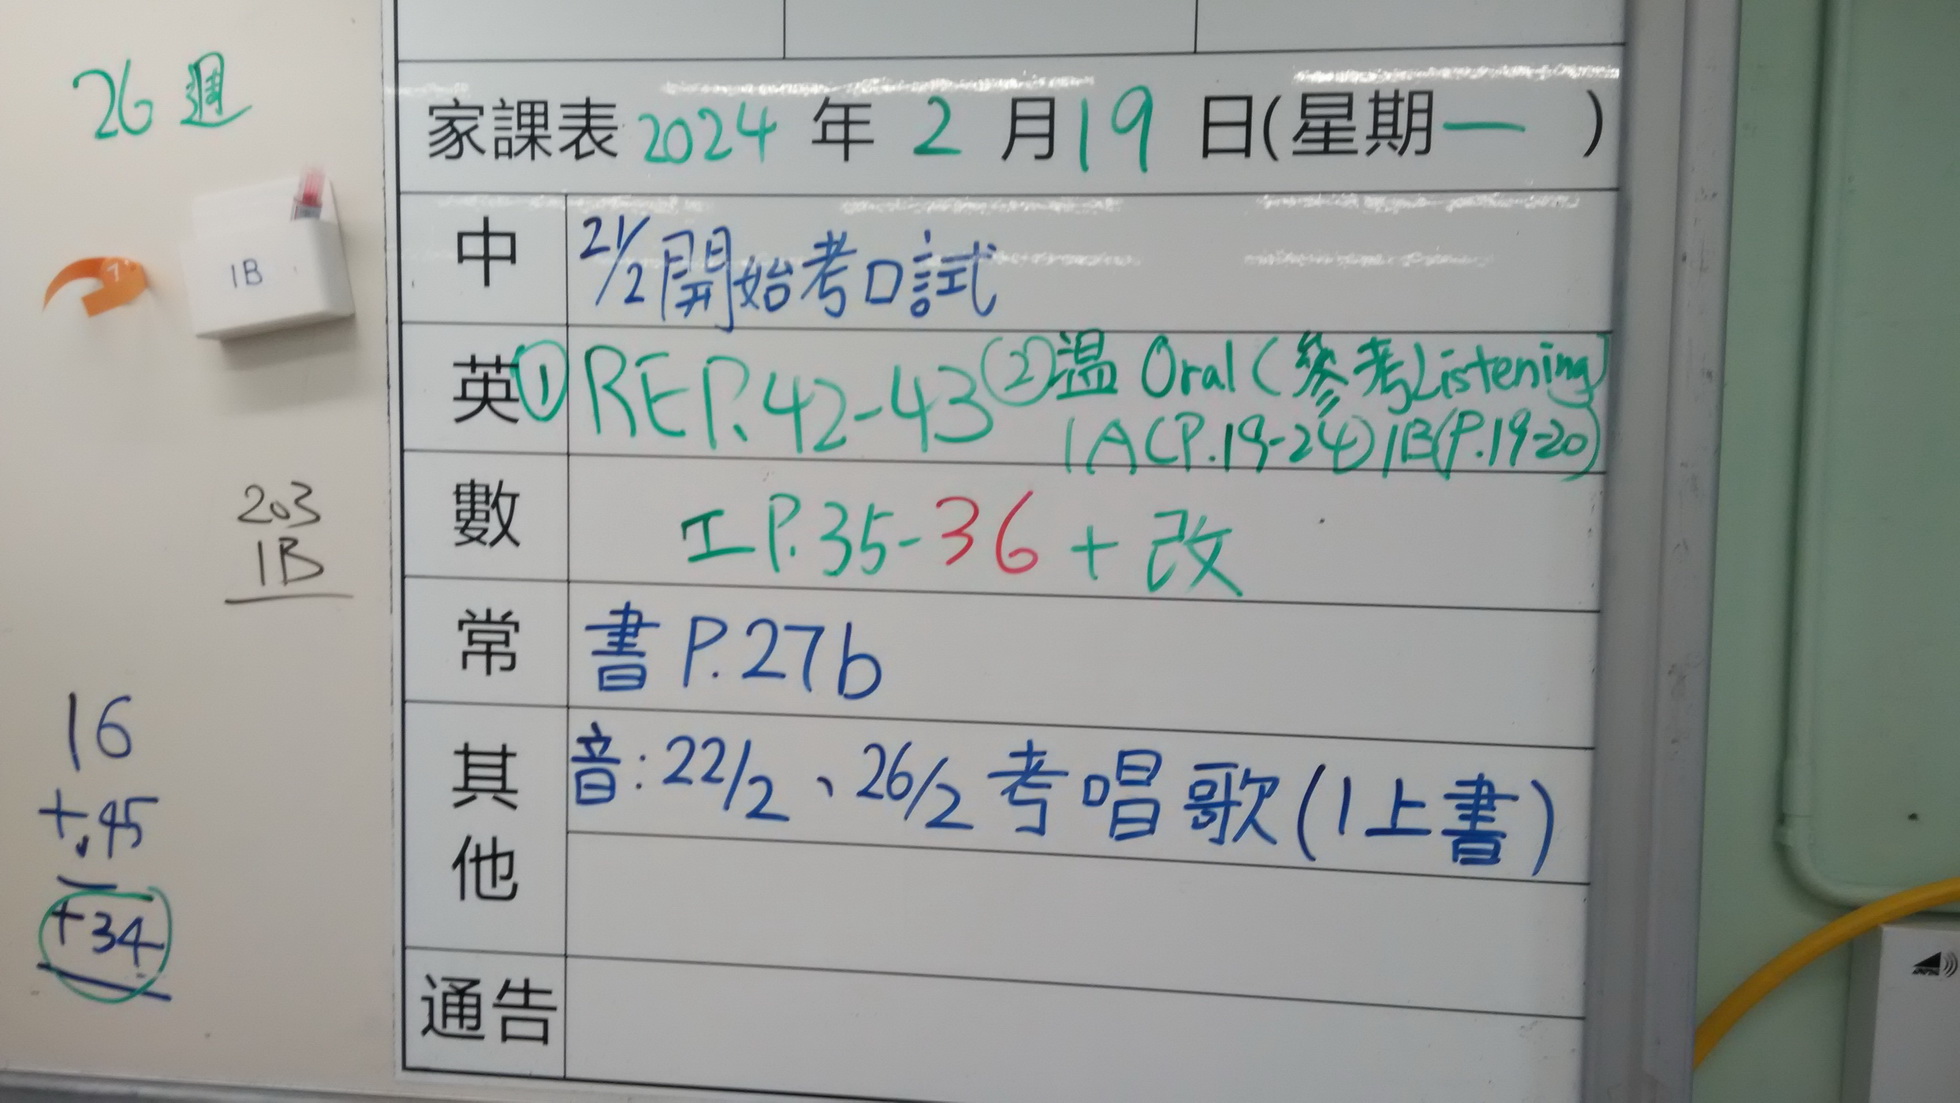 26 週
1B
203
1B
16
+45
+34
家課表 2024 年 2 月 19 日(星期一 )
中 21/2 開始考口試
英 ① RE P.42-43 ② 温 Oral (參考Listening
1A(P.19-24) 1B(P.19-20)
數 工 P.35-36 + 改
常 書 P.27b
其他 音: 22/2、26/2 考唱歌(1上書)
通告